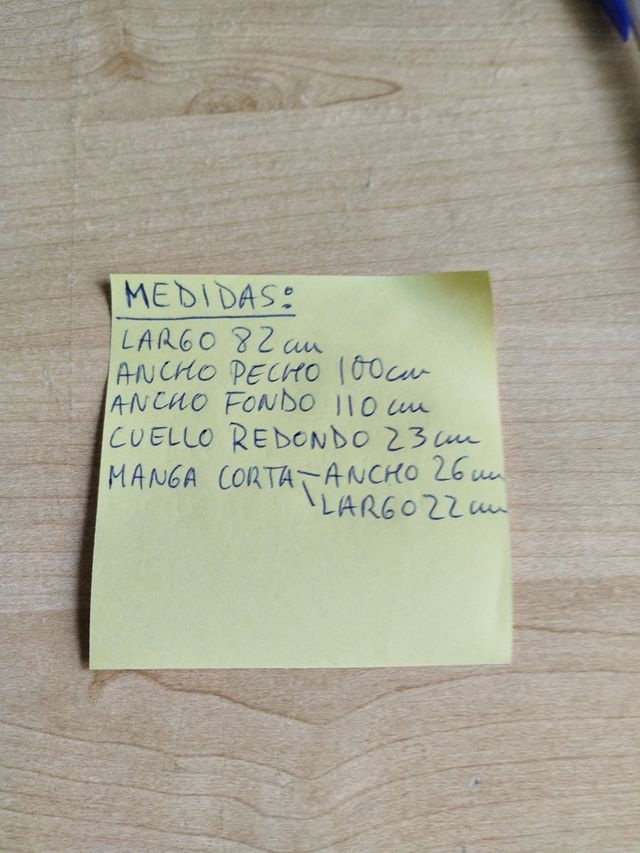 MEDIDAS:
LARGO 82 cm
ANCHO PECHO 100 cm
ANCHO FONDO 110 cm
CUELLO REDONDO 23 cm
MANGA CORTA – ANCHO 26 cm
\ LARGO 22 cm